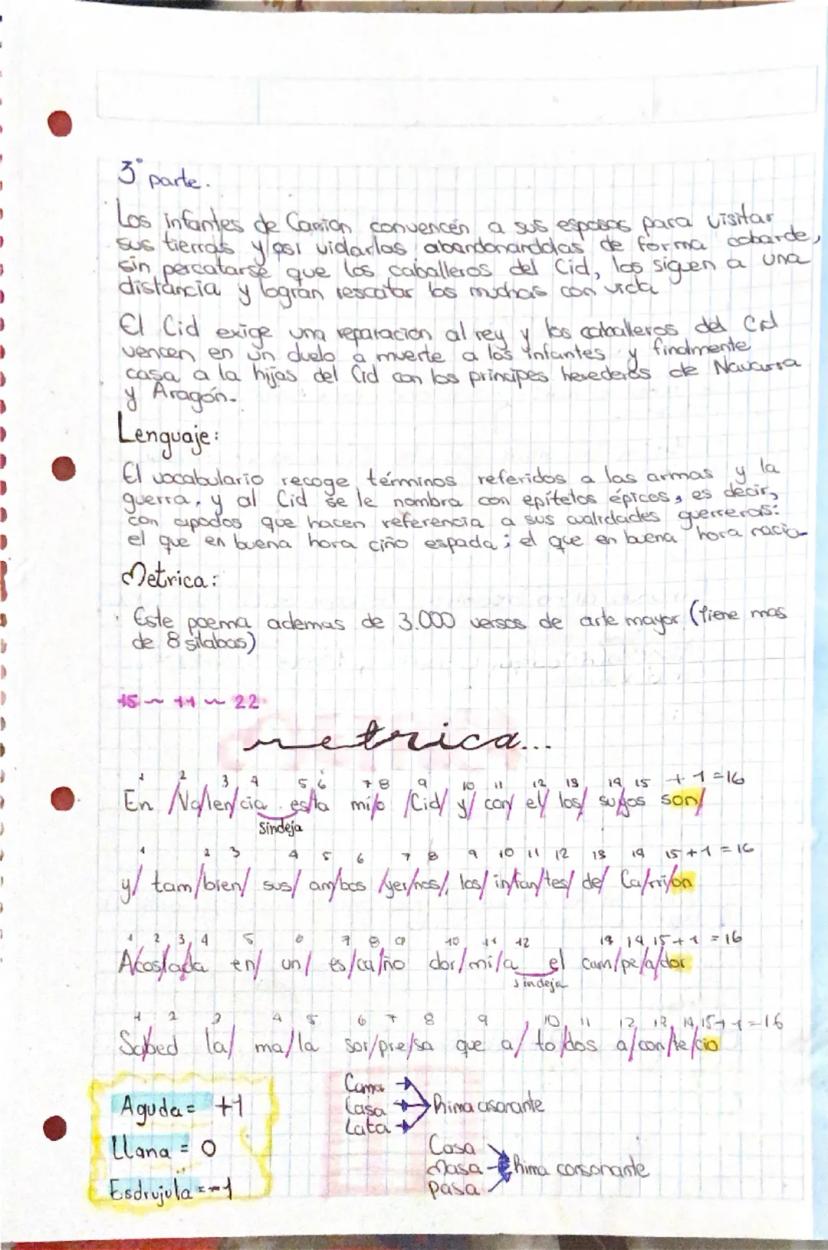 3º parte.
Los infantes de Carrion convencen a sus esposas para visitar
sus tierras y asi vidarlas abandonanddas de forma cobarde,
sin percatarse que los caballeros del Cid, los siguen a una
distancia y logran rescatar las muchas con vida
El Cid exige una reparacion al rey y los caballeros del Cid
vencen en un duelo a muerte a los infantes y finalmente
casa a la hijas del Cid con los principes herederos de Navarra
y Aragón.
Lenguaje:
El vocabulario recoge términos referidos a las armas y la
guerra, y al Cid se le nombra con epítetos épicos, es decir,
con apodos que hacen referencia a sus cualidades guerreras:
el que en buena hora ciño espada; el que en buena hora nacio
Metrica:
Este poema ademas de 3.000 versos de arte mayor (tiene mas
de 8 silabas)
15 ~ 11 ~ 22
metrica...
1 2 3 4 5 6 7 8 9 10 11 12 13 14 15 +1=16
En /Va/len/cia esta mi/o /Cid/ y/ con/ el/ los/ su/yos son/
Sindeja
1 2 3 4 5 6 7 8 9 10 11 12 13 14 15+1=16
y/ tam/bien/ sus/ am/bos /yer/nos/, los/ in/fan/tes/ de/ Ca/rri/on
1 2 3 4 5 6 7 8 9 10 11 12 13 14 15+1=16
Acos/tada en/ un/ es/ca/ño dor/mi/a el cam/pe/a/dor
sindeja
1 2 3 4 5 6 7 8 9 10 11 12 13 14 15+1=16
Sabed la/ ma/la sor/pre/sa que a/ to/dos a/con/te/cio
Aguda= +1
Llana = 0
Esdrujula=-1
Cama
Casa
Lata
Rima asorante
Casa
Masa
Pasa
Rima consonante